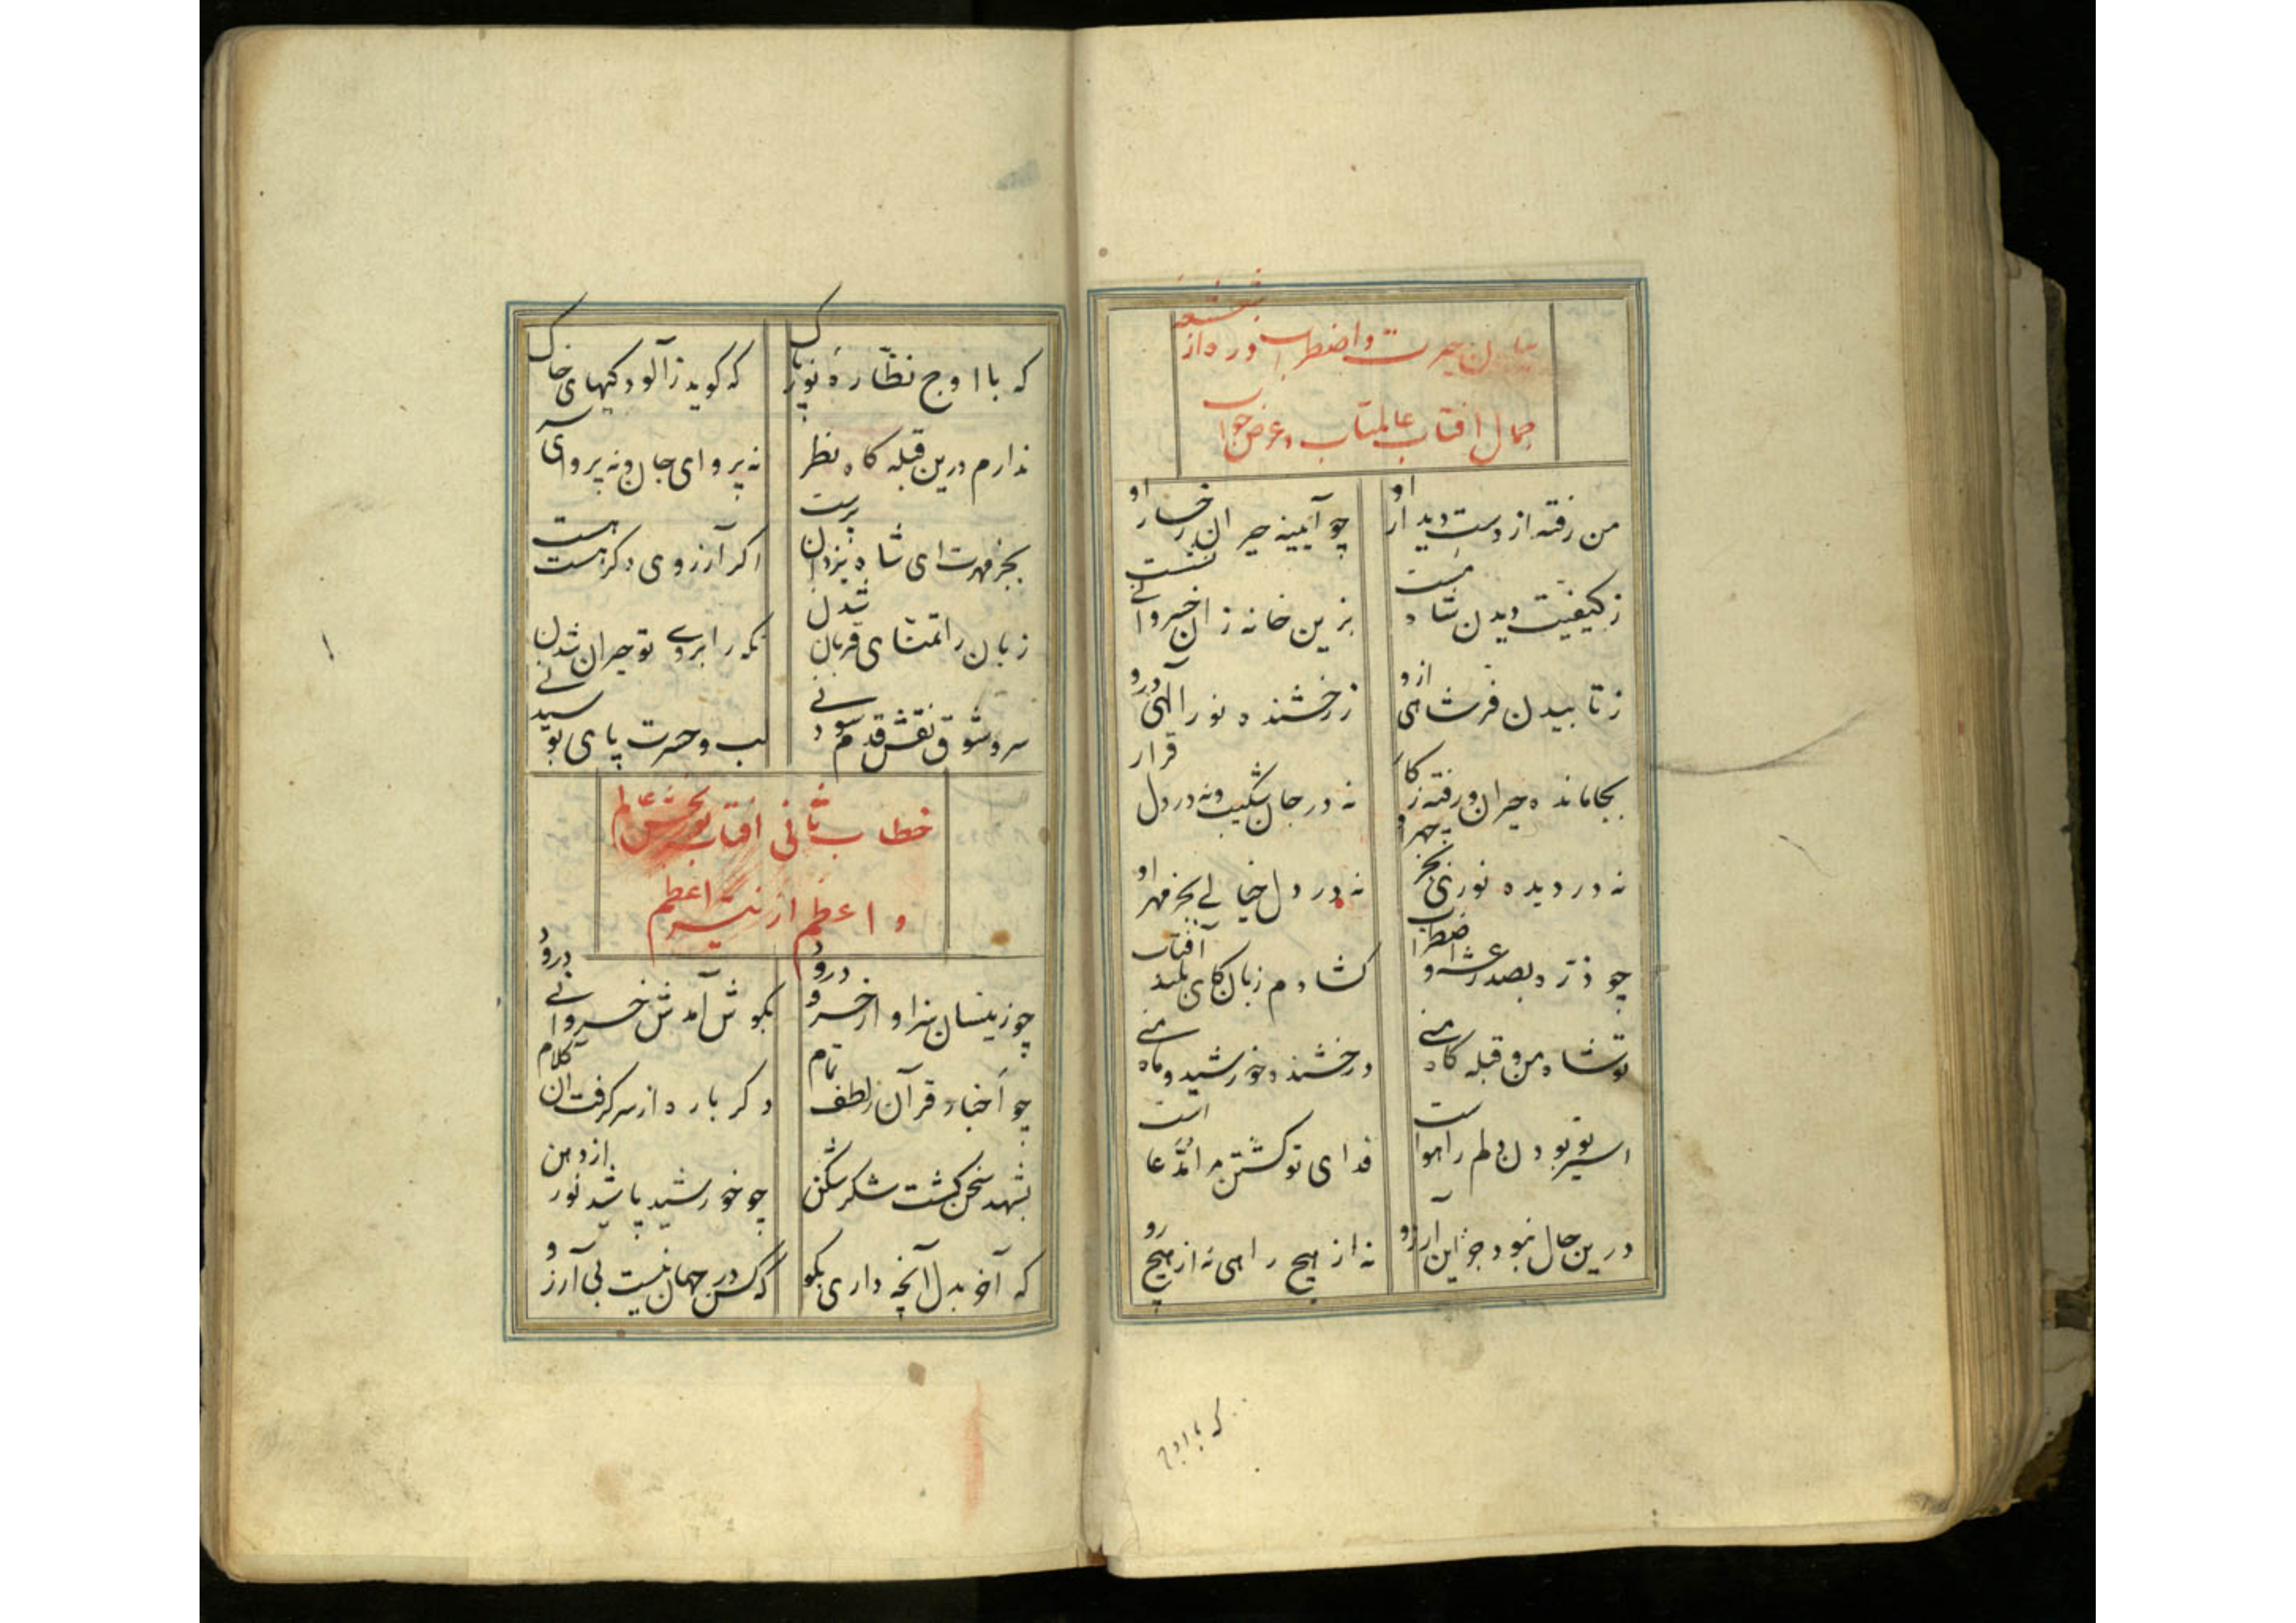 بیان حیرت و اضطراب ذره از شعشعهٔ
جمال افتاب عالمتاب و عرض جواب
من رفته از دست دیدار او
چو آیینه حیران رخسار او
ز کیفیت دیدن شاه مست
بزین خانه زان خسروانی نشست
ز تابیدن فر شاهی ازو
ز رخشنده نور الهی درو
بجا مانده حیران و رفته ز کار
نه در جان شکیب و نه در دل قرار
نه در دیده نوری بجز چهر او
نه در دل خیالی بجز مهر او
چو ذره بصد رعشه و اضطراب
کشادم زبان کای بلند آفتاب
تو شاه من و قبله کاه منی
درخشنده خورشید و ماه منی
اسیر تو بودن دلم را هواست
فدای تو کشتن مرا مدعاست
درین حال نبود جز این آرزو
نه از هیچ راهی نه از هیچ رو
که با اوج
که با اوج نظارهٔ نور پاک
که کوید ز آلودکیهای خاک
ندارم درین قبله کاه نظر
نه پروای جان و نه پروای سر
بجز مهرت ای شاه یزدان پرست
اکر آرزوی دکر هست هست
زبان را تمنای قربان شدن
نکه را بروی تو حیران شدن
سر و شوق نقش قدم سودنی
لب و حسرت پای بوسیدنی
خطاب ثانی افتاب نوربخش عالم
و اعظم از نیر اعظم
چو زینسان سزاوار خسرو درود
بکوش آمدش خسروانی درود
چو اخبار قرآن ز لطف تمام
دکر باره از سر کرفت آن کلام
بشهد سخن کشت شکر شکن
چو خورشید پاشید نور از دهن
که آخر بدل آنچه داری بکو
که کس در جهان نیست بی آرزو